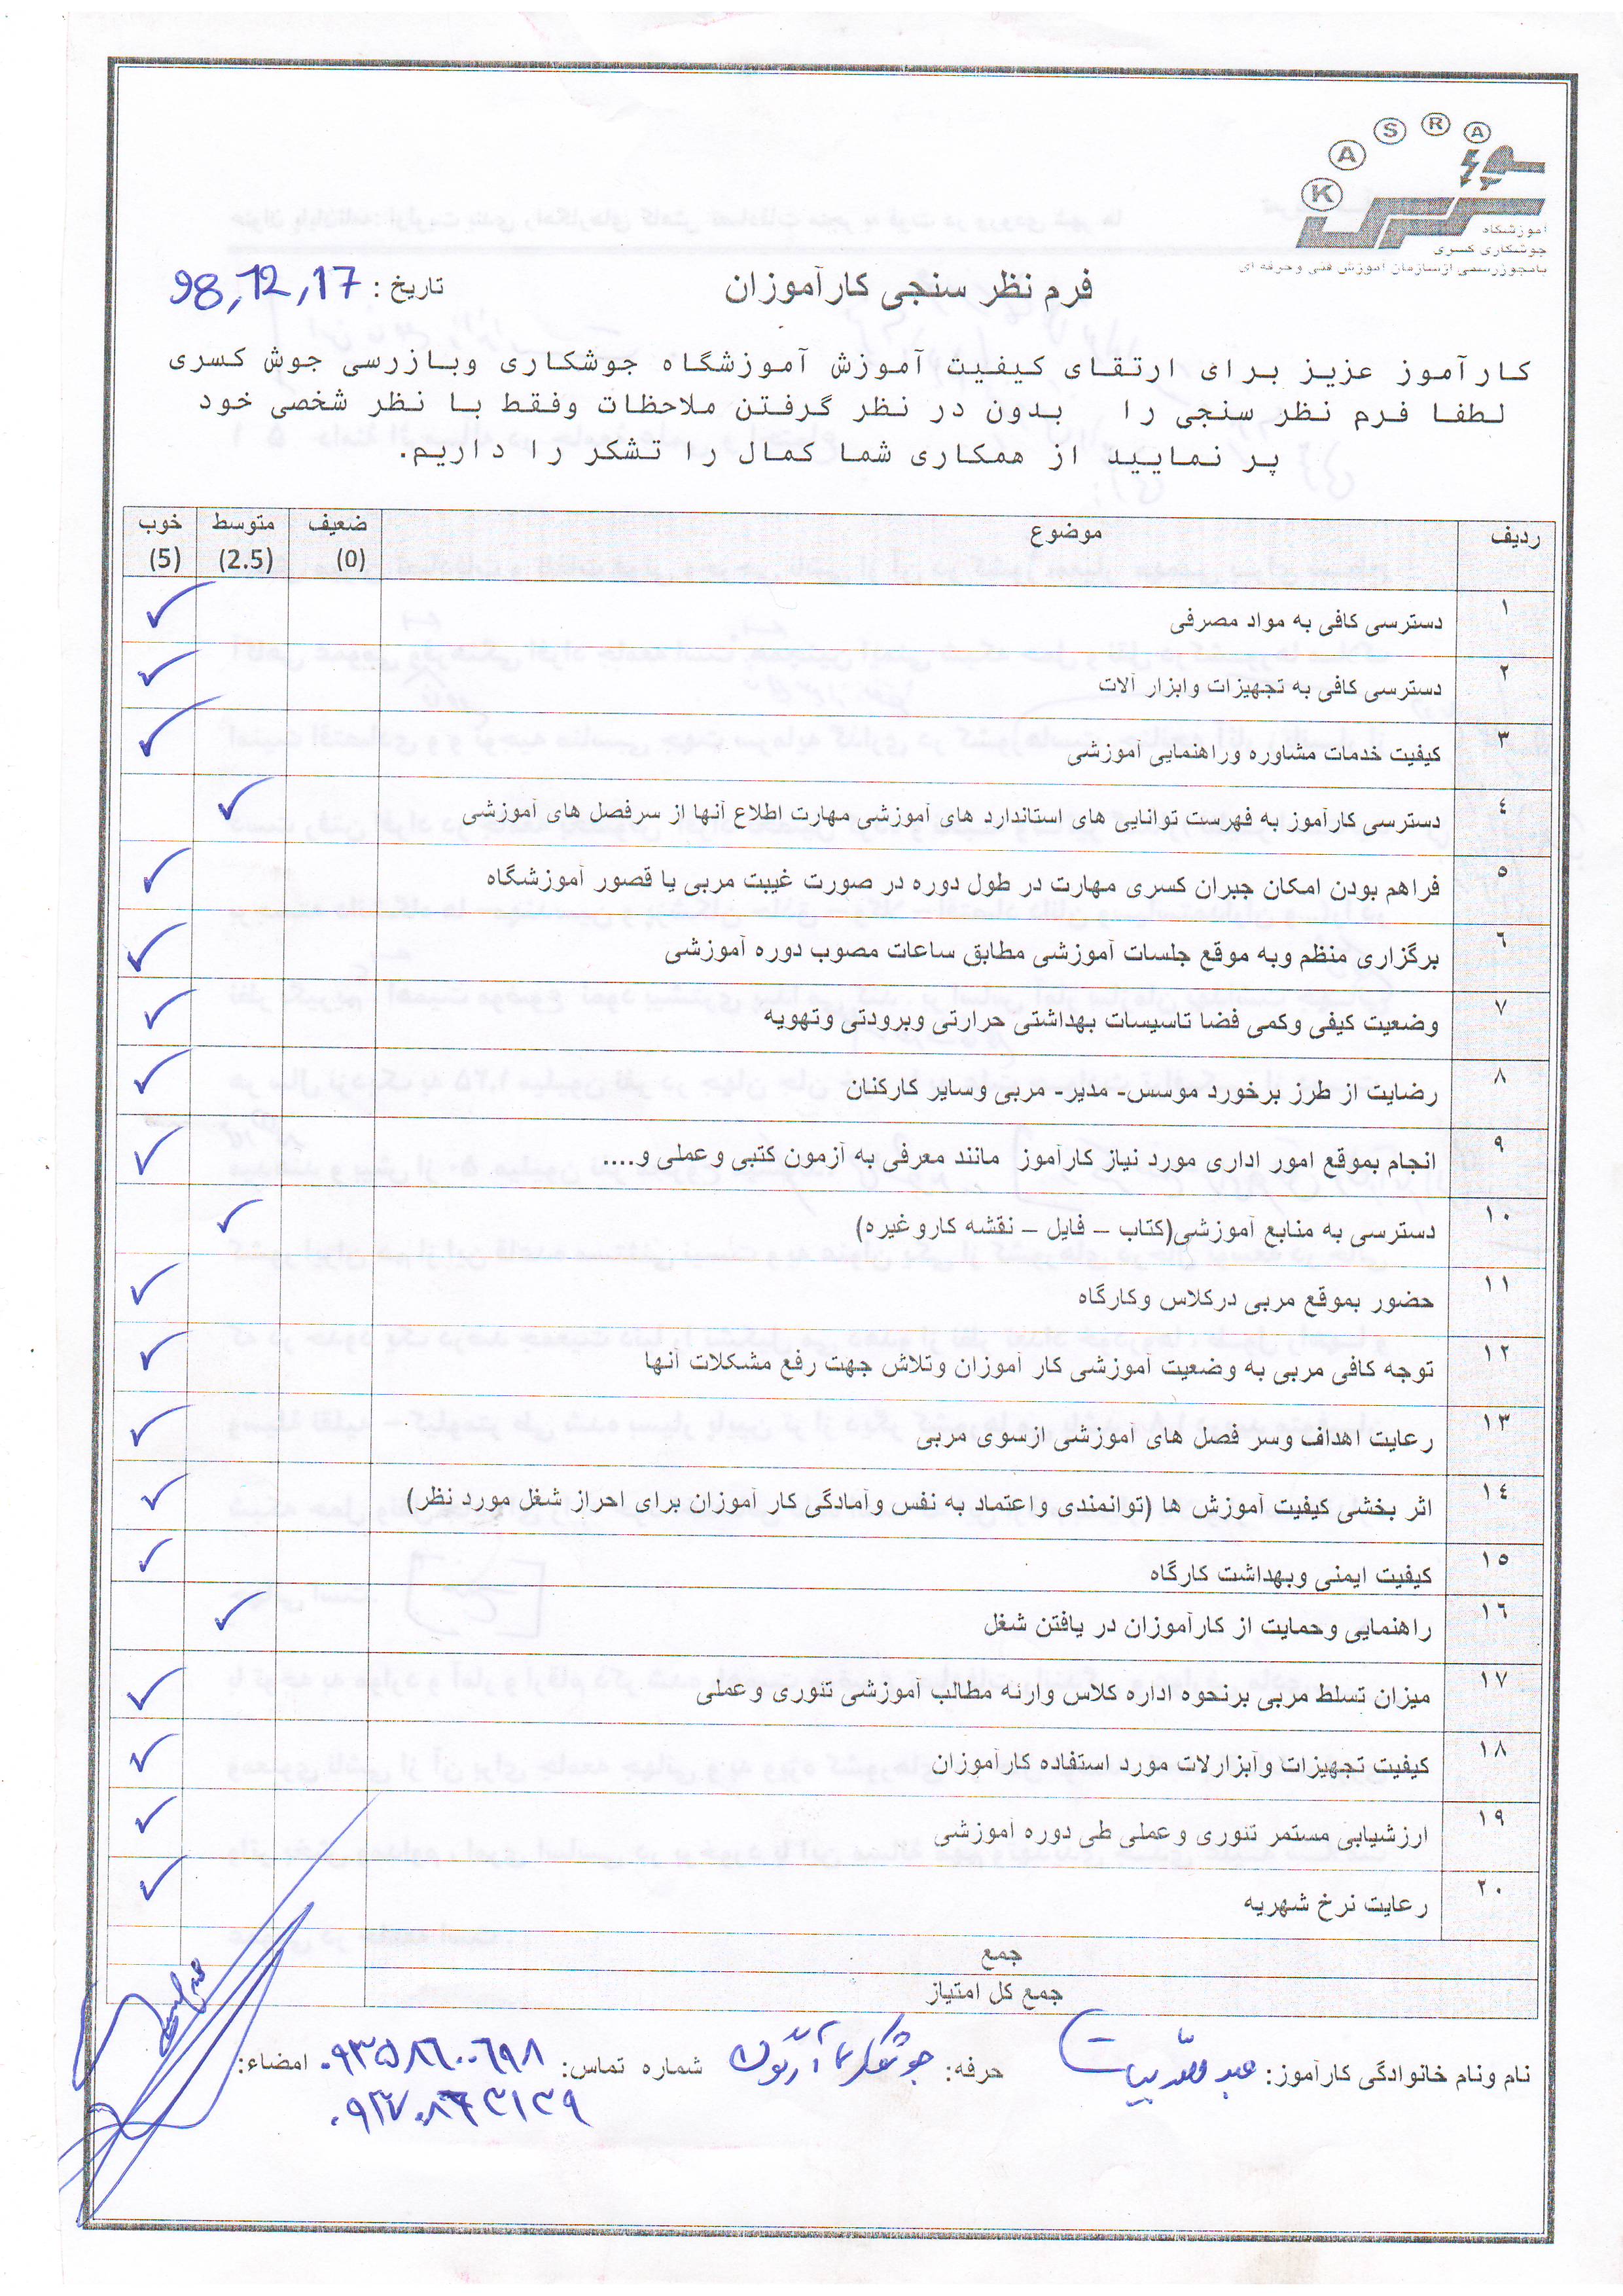 K A S R A
آموزشگاه
جوشکاری کسری
بامجوزرسمی ازسازمان آموزش فنی وحرفه ای
فرم نظر سنجی کارآموزان
تاریخ : 98,12,17
کارآموز عزیز برای ارتقای کیفیت آموزش آموزشگاه جوشکاری وبازرسی جوش کسری
لطفا فرم نظر سنجی را بدون در نظر گرفتن ملاحظات وفقط با نظر شخصی خود
پر نمایید از همکاری شما کمال را تشکر را داریم.
ردیف موضوع ضعیف (0) متوسط (2.5) خوب (5)
۱ دسترسی کافی به مواد مصرفی ✓
۲ دسترسی کافی به تجهیزات وابزار آلات ✓
۳ کیفیت خدمات مشاوره وراهنمایی آموزشی ✓
٤ دسترسی کارآموز به فهرست توانایی های استاندارد های آموزشی مهارت اطلاع آنها از سرفصل های آموزشی ✓
٥ فراهم بودن امکان جبران کسری مهارت در طول دوره در صورت غیبت مربی یا قصور آموزشگاه ✓
٦ برگزاری منظم وبه موقع جلسات آموزشی مطابق ساعات مصوب دوره آموزشی ✓
۷ وضعیت کیفی وکمی فضا تاسیسات بهداشتی حرارتی وبرودتی وتهویه ✓
۸ رضایت از طرز برخورد موسس- مدیر- مربی وسایر کارکنان ✓
۹ انجام بموقع امور اداری مورد نیاز کارآموز مانند معرفی به آزمون کتبی وعملی و.... ✓
۱۰ دسترسی به منابع آموزشی(کتاب – فایل – نقشه کارو غیره) ✓
۱۱ حضور بموقع مربی درکلاس وکارگاه ✓
۱۲ توجه کافی مربی به وضعیت آموزشی کار آموزان وتلاش جهت رفع مشکلات آنها ✓
۱۳ رعایت اهداف وسر فصل های آموزشی ازسوی مربی ✓
۱٤ اثر بخشی کیفیت آموزش ها (توانمندی واعتماد به نفس وآمادگی کار آموزان برای احراز شغل مورد نظر) ✓
۱٥ کیفیت ایمنی وبهداشت کارگاه ✓
۱٦ راهنمایی وحمایت از کارآموزان در یافتن شغل ✓
۱۷ میزان تسلط مربی برنحوه اداره کلاس وارئه مطالب آموزشی تئوری وعملی ✓
۱۸ کیفیت تجهیزات وآبزارلات مورد استفاده کارآموزان ✓
۱۹ ارزشیابی مستمر تئوری وعملی طی دوره آموزشی ✓
۲۰ رعایت نرخ شهریه ✓
جمع
جمع کل امتیاز
نام ونام خانوادگی کارآموز: حرفه: شماره تماس: ۰۹۳۵۸۶۰۰۶۹۸ امضاء: